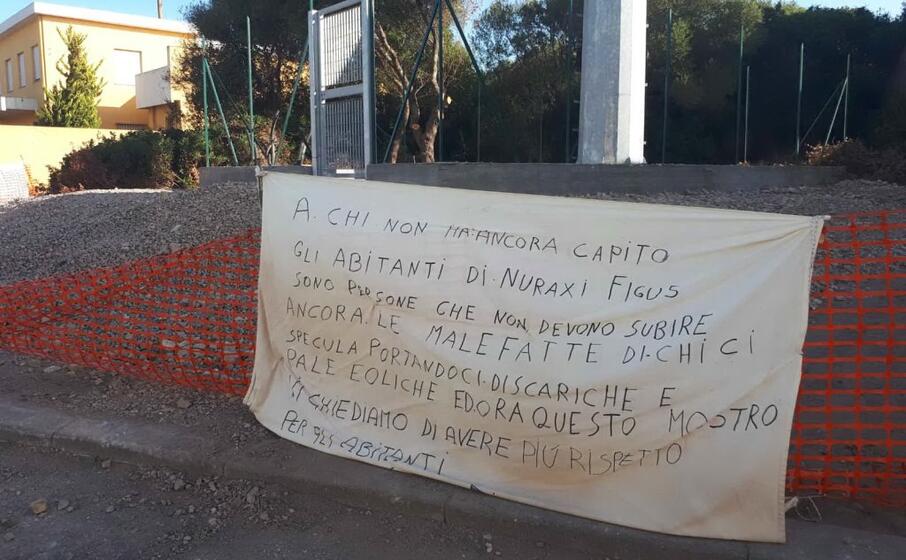 A. CHI NON HA ANCORA CAPITO
GLI ABITANTI DI. NURAXI FIGUS
SONO PERSONE CHE NON DEVONO SUBIRE
ANCORA. LE MALEFATTE DI. CHI CI
SPECULA PORTANDOCI. DISCARICHE E
PALE EOLICHE ED. ORA QUESTO MOSTRO
VI CHIEDIAMO DI AVERE PIÚ RISPETTO
PER GLI ABITANTI